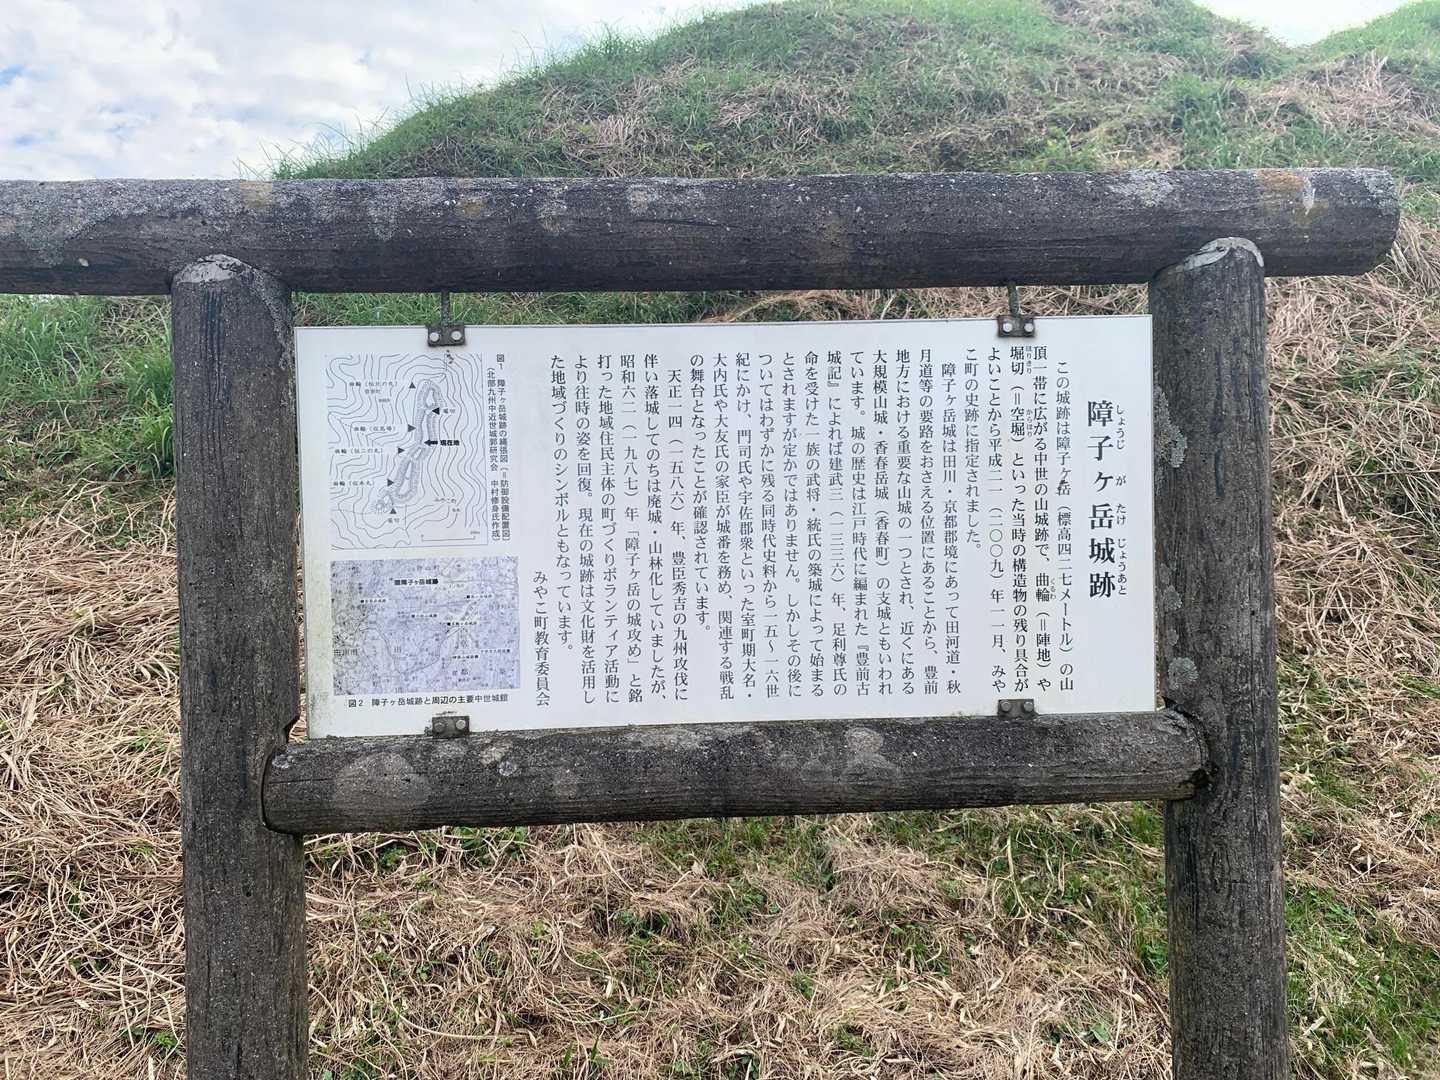 障子ヶ岳城跡
しょうじ が たけ じょうあと
この城跡は障子ヶ岳（標高四二七メートル）の山
頂一帯に広がる中世の山城跡で、曲輪（＝陣地）や
くるわ
堀切（＝空堀）といった当時の構造物の残り具合が
ほりきり からほり
よいことから平成二一（二〇〇九）年一一月、みや
こ町の史跡に指定されました。
障子ヶ岳城は田川・京都郡境にあって田河道・秋
月道等の要路をおさえる位置にあることから、豊前
地方における重要な山城の一つとされ、近くにある
大規模山城・香春岳城（香春町）の支城ともいわれ
ています。城の歴史は江戸時代に編まれた『豊前古
城記』によれば建武三（一三三六）年、足利尊氏の
命を受けた一族の武将・統氏の築城によって始まる
とされますが定かではありません。しかしその後に
ついてはわずかに残る同時代史料から一五～一六世
紀にかけ、門司氏や宇佐郡衆といった室町期大名・
大内氏や大友氏の家臣が城番を務め、関連する戦乱
の舞台となったことが確認されています。
天正一四（一五八六）年、豊臣秀吉の九州攻伐に
伴い落城してのちは廃城・山林化していましたが、
昭和六二（一九八七）年「障子ヶ岳の城攻め」と銘
打った地域住民主体の町づくりボランティア活動に
より往時の姿を回復。現在の城跡は文化財を活用し
た地域づくりのシンボルともなっています。
みやこ町教育委員会
図1 障子ヶ岳城跡の縄張図（＝防御設備配置図）
（北部九州中近世城郭研究会 中村修身氏作成）
堀切
現在地
堀切
図2 障子ヶ岳城跡と周辺の主要中世城館
障子ヶ岳城跡